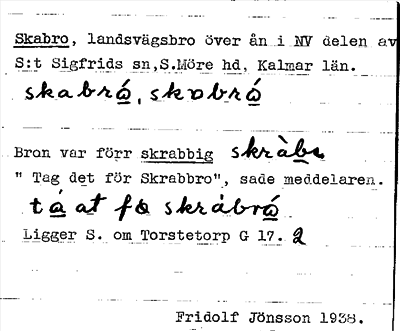 Skabro, landsvägsbro över ån i NV delen av
S:t Sigfrids sn,S.Möre hd, Kalmar län.
skabrå, skabrå
Bron var förr skrabbig skràbı
" Tag det för Skrabbro", sade meddelaren.
tá at fø skràbrå
Ligger S. om Torstetorp G 17. 2
Fridolf Jönsson 1938.